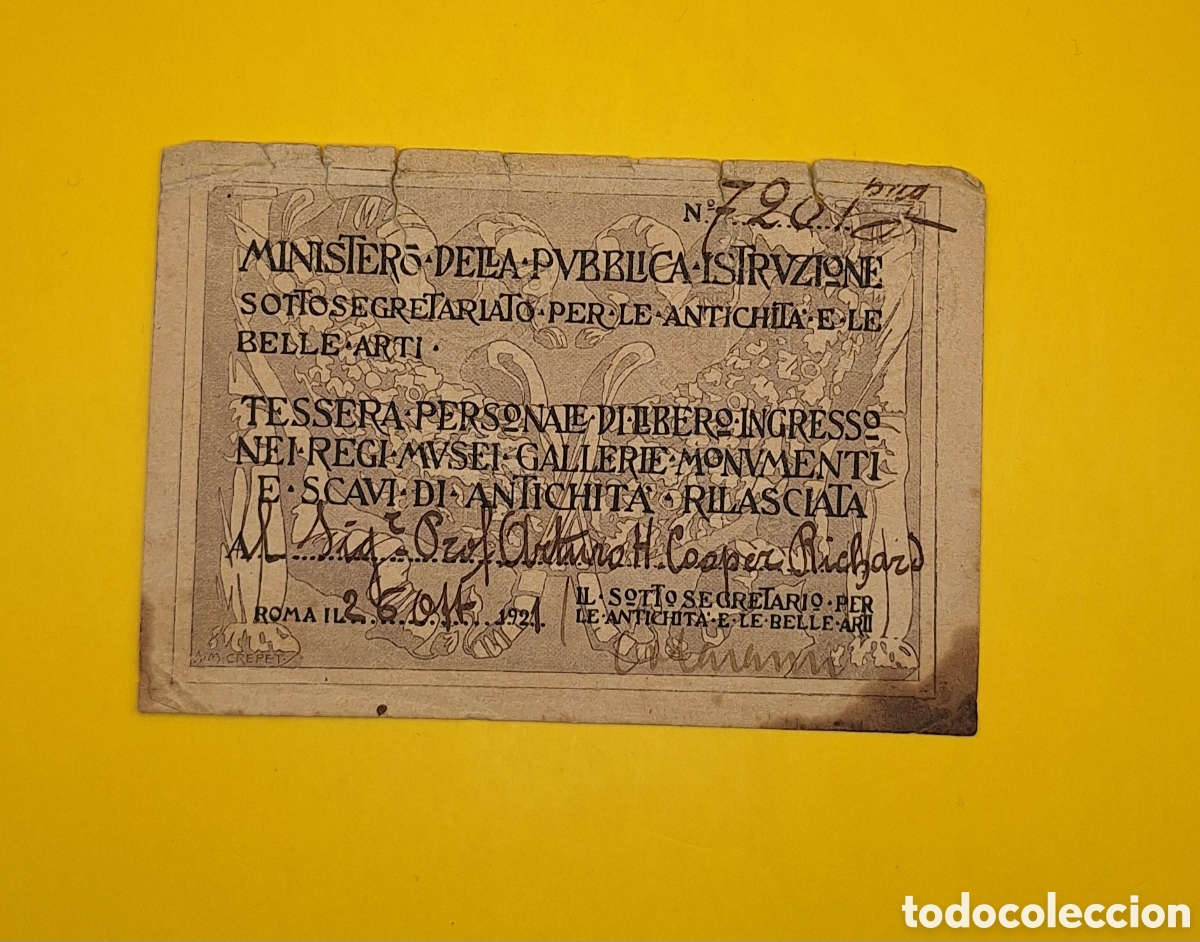 N.º 7201
MINISTERO·DELLA·PVBBLICA·ISTRVZIONE
SOTTOSEGRETARIATO·PER·LE·ANTICHITA·E·LE
BELLE·ARTI·
TESSERA·PERSONALE·DI·LIBERO·INGRESSO
NEI·REGI·MVSEI·GALLERIE·MONVMENTI
E·SCAVI·DI·ANTICHITA·RILASCIATA
Al Sigr Prof Arturo H. Cooper Richard
ROMA IL 26 Ott 1921
IL·SOTTOSEGRETARIO·PER
LE·ANTICHITA·E·LE·BELLE·ARTI
A·M·CREPET
todocoleccion